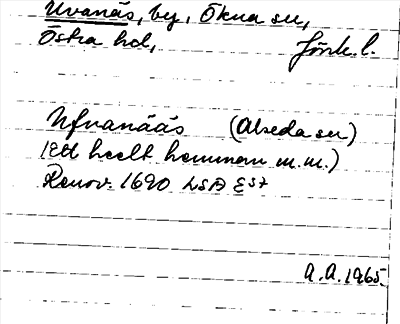 Uvanäs, by, Ökna sn,
Östra hd, Jönk. l.
Ufvanääs (Alseda sn)
(Ett heelt hemman m.m.)
Renov. 1690 LSA E57
A.A. 1965.